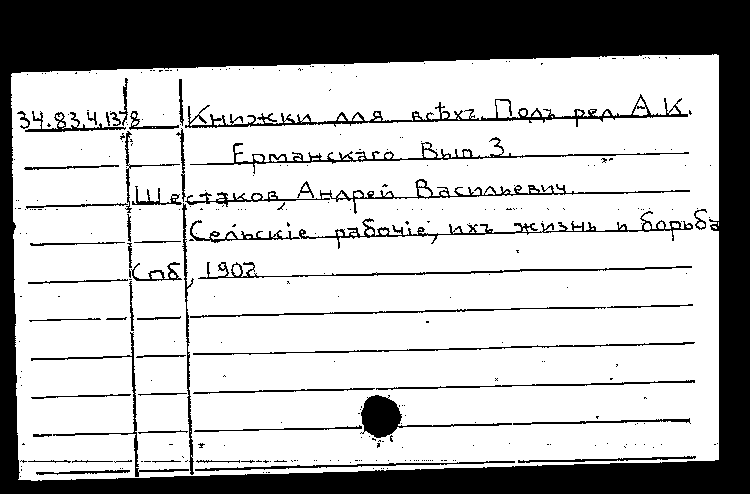 34.83.4.1378 Книжки для всѣхъ. Подъ ред. А.К.
Ерманскаго Вып. 3.
Шестаков, Андрей Васильевич.
Сельскіе рабочіе, ихъ жизнь и борьба
Спб, 1907